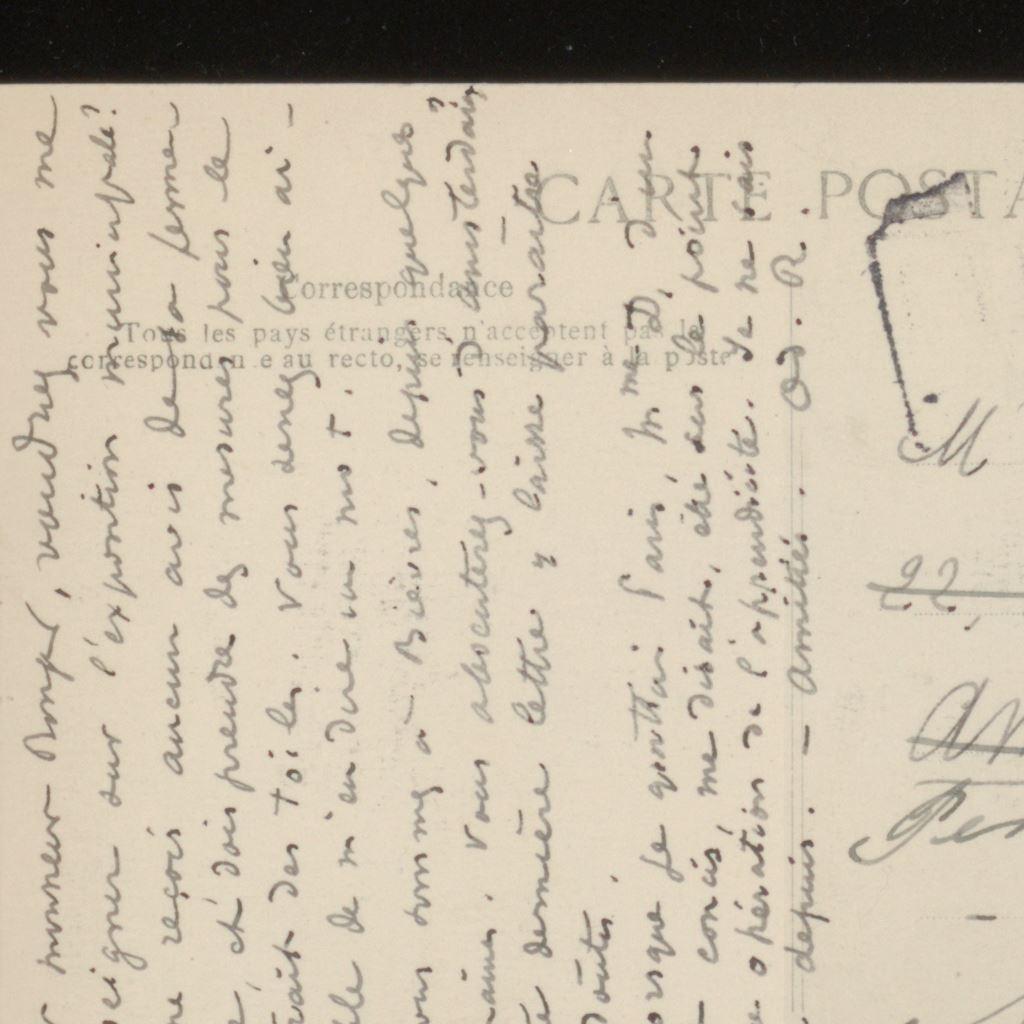 CARTE POSTA
Correspondance
Tous les pays étrangers n'acceptent pas le
correspondan e au recto, se renseigner à la poste
monsieur Bonger, voudriez vous me
eigner sur l'exposition municipale?
ne reçois aucun avis de sa ferme
, et dois prendre des mesures pour le
des toiles. Vous seriez bien ai-
de m'en dire un mot.
sommes à Bièvres, depuis quelques
maines. Vous absentez-vous d'Amsterdam?
dernière lettre y laisse paraître
Doutes.
orsque je quittai Paris, Mme D, d'un
concis, me disait, être sur le point
opération de l'appendicite. Je ne sais
depuis. — Amitiés. Od. R.
M
22